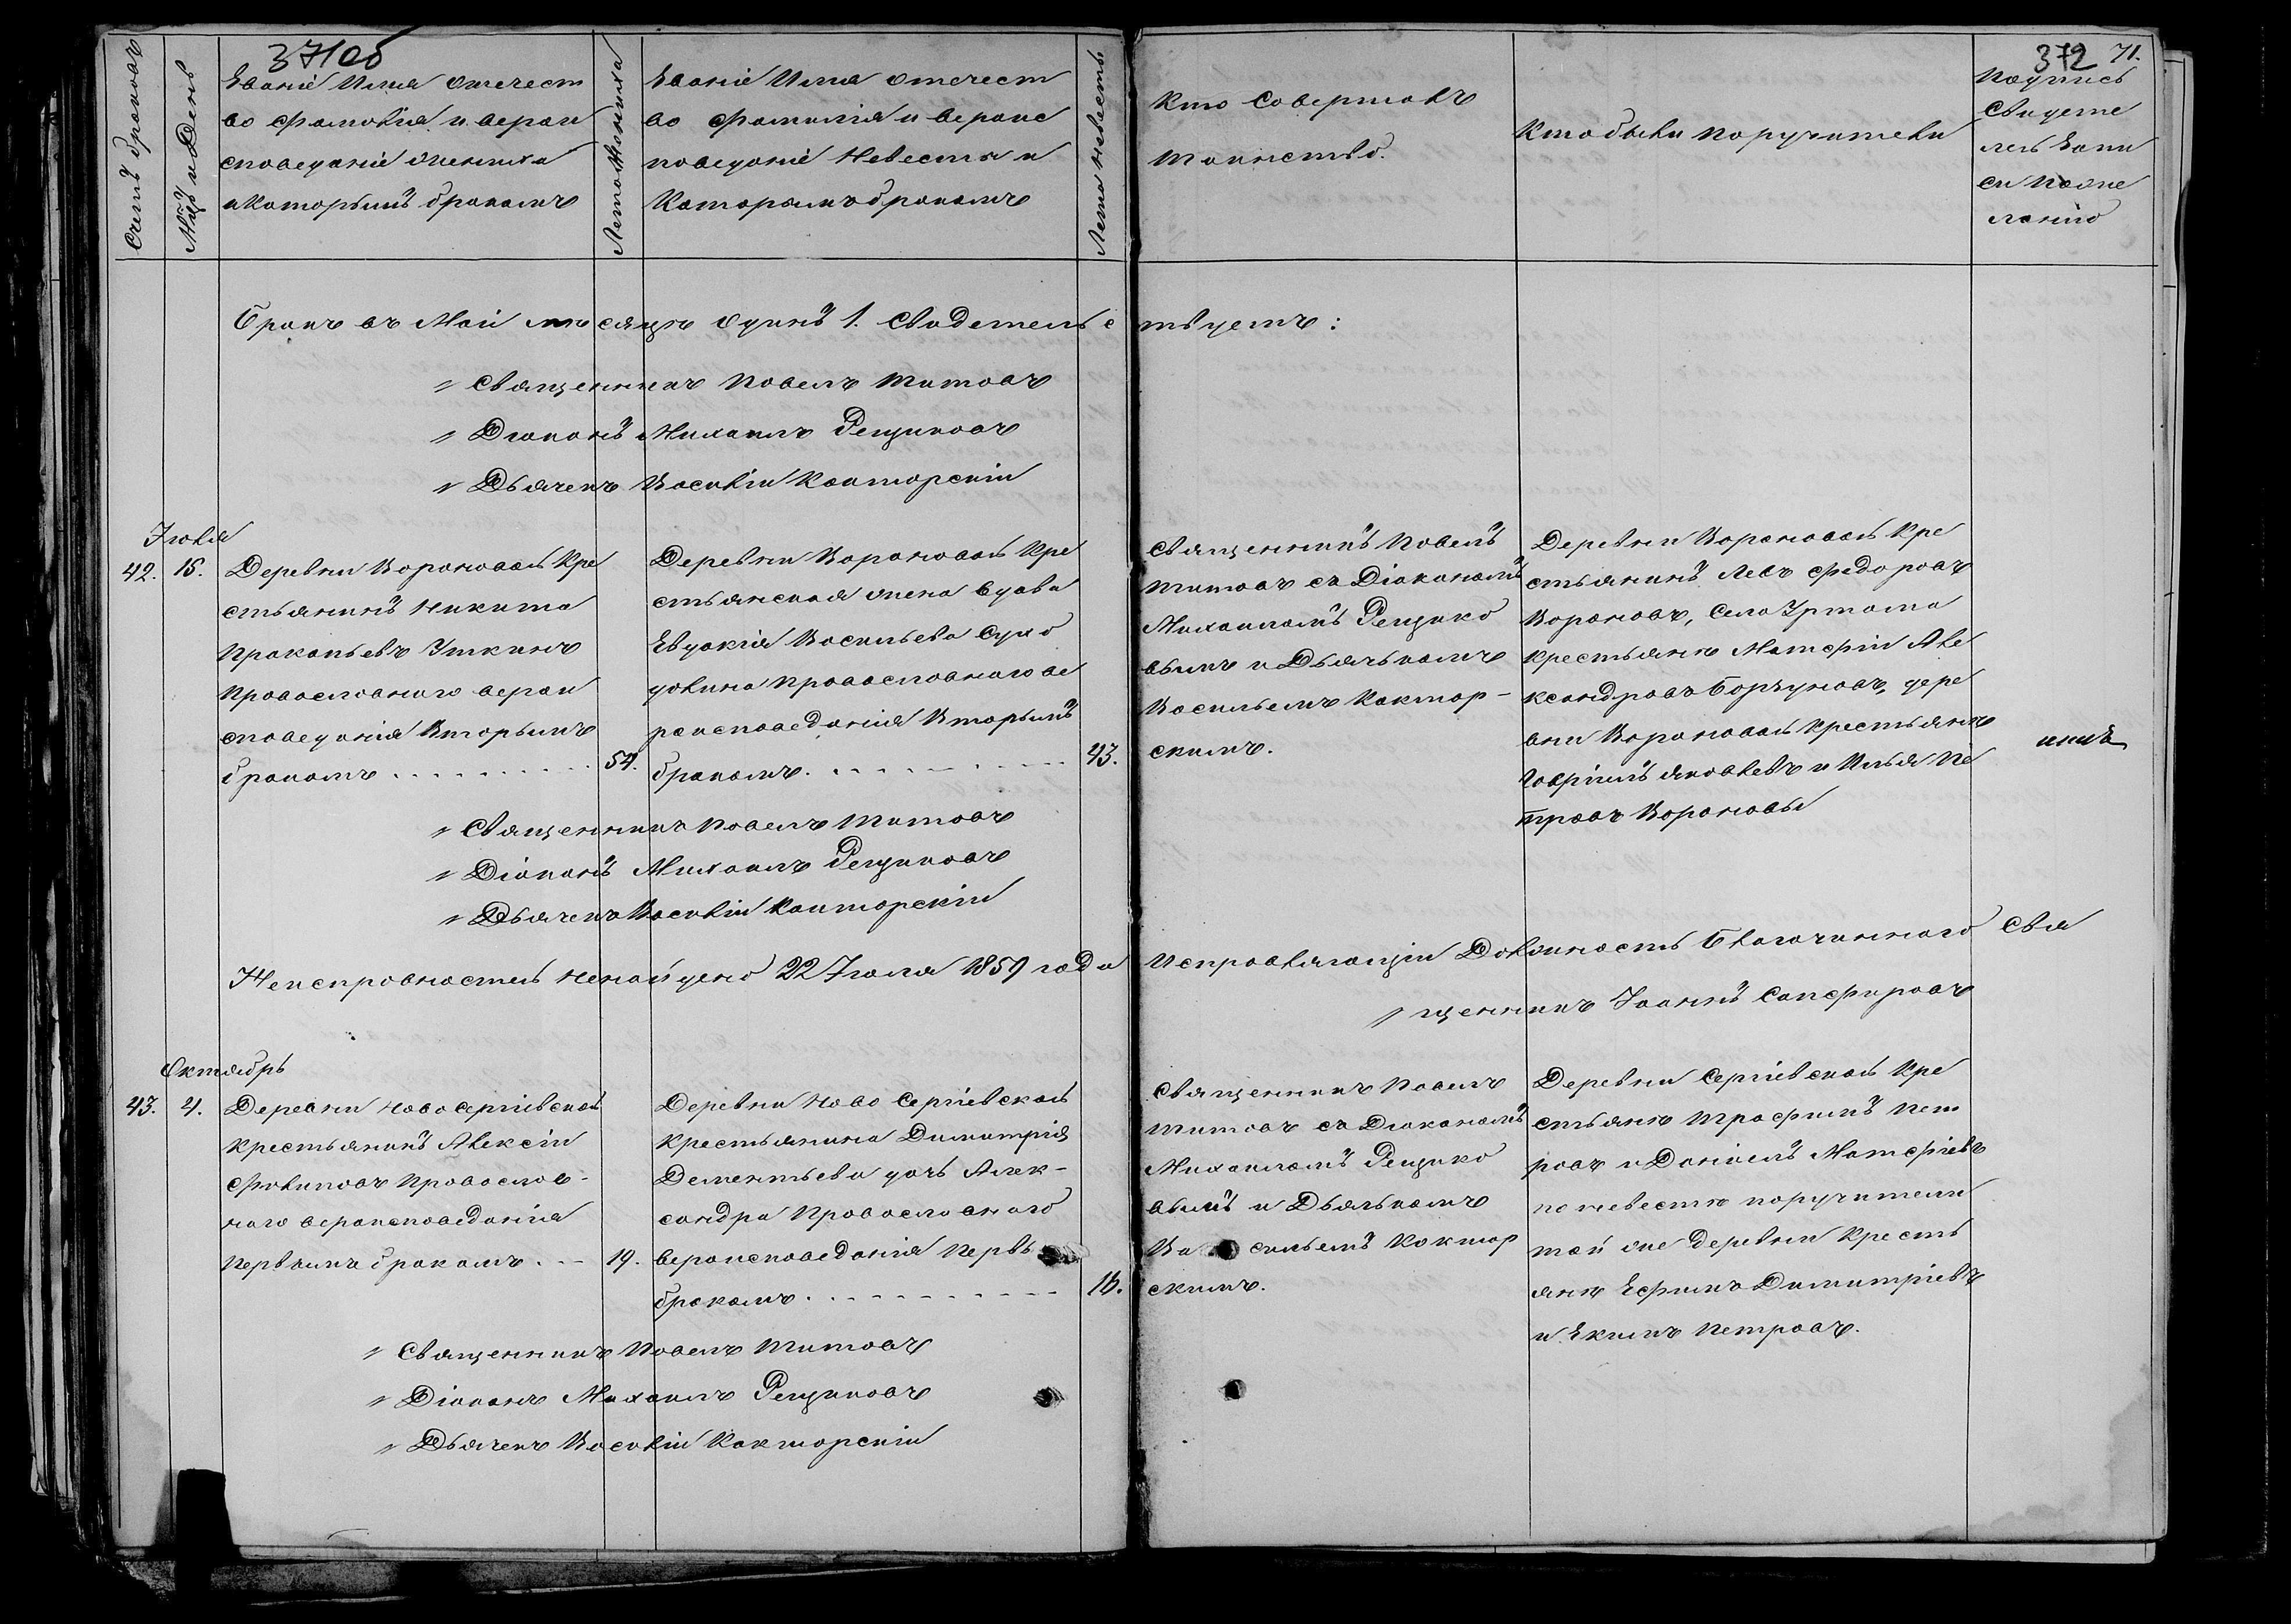 371об
372 71.
Счетъ браковъ
Мцъ и День
Званіе Имя отечест
во Фамилія и верои
споведаніе жениха
и Которымъ бракомъ
Лета Жениха
Званіе Имя отечест
во Фамилія и вероис
поведаніе Невесты и
Которымъ бракомъ
Лета невесты
Кто Совершалъ
Таинство.
Кто были поручители
Подпись
Свидете
лей Запи
си по же
ланію
Бракъ въ Маи месяце одинъ 1. Свидетельствуетъ:
Священникъ Павелъ Титовъ
Диаконъ Михаилъ Рещиковъ
Дьячекъ Василіи Кокторскіи
Іюля
42. 15.
Деревни Вороновой Кре
стьянинъ Никита
Прокопьевъ Уткинъ
Православнаго верои
споведанія Вторымъ
бракомъ 54.
Деревни Вороновой Кре
стьянская жена вдова
Евдокія Васильева Сухо
долина Православнаго ве
роисповеданія Вторымъ
бракомъ. 43.
Священникъ Павелъ
Титовъ съ Діакономъ
Михаиломъ Рещико
вымъ и Дьячькомъ
Васильемъ Коктор-
скимъ.
Деревни Вороновой Кре
стьянинъ Левъ Федоровъ
Вороновъ, Села Уртама
крестьяне Матфіи Але
ксандровъ Боргуновъ, дере
вни Вороновой Крестьяне
Гавріилъ Яковлевъ и Илья Пе
тровъ Вороновы
Священникъ Павелъ Титовъ
Діаконъ Михаилъ Рещиковъ
Дьячекъ Василіи Кокторскіи
Неисправностей ненайдено 22 Іюля 1859 года Исправляющіи Должность Благочиннаго Свя
щенникъ Іоаннъ Сапфировъ
Октябрь
43. 4.
Деревни Ново Сергіевской
Крестьянинъ Алексіи
Филиповъ Православ-
наго вероисповеданія
Первымъ бракомъ. 19.
Деревни Ново Сергіевской
Крестьянина Димитрія
Дементьева дочь Алек-
сандра Православнаго
вероисповеданія Первы
бракомъ. 16.
Священникъ Павелъ
Титовъ съ Диакономъ
Михаиломъ Рещико
вымъ и Дьячькомъ
Васильемъ Коктор
скимъ.
Деревни Сергіевской Кре
стьяне Трафимъ Пет
ровъ и Даніилъ Матфіевъ
по невесте поручители
той же Деревни Кресть
яне Ефимъ Димитріевъ
и Екимъ Петровъ.
Священникъ Павелъ Титовъ
Діаконъ Михаилъ Рещиковъ
Дьячекъ Василіи Кокторскіи